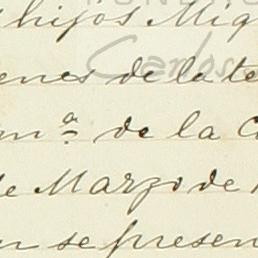 hijos Mig
Carlos
enes de la te
m.ª de la C
de Marzo de
n se presen